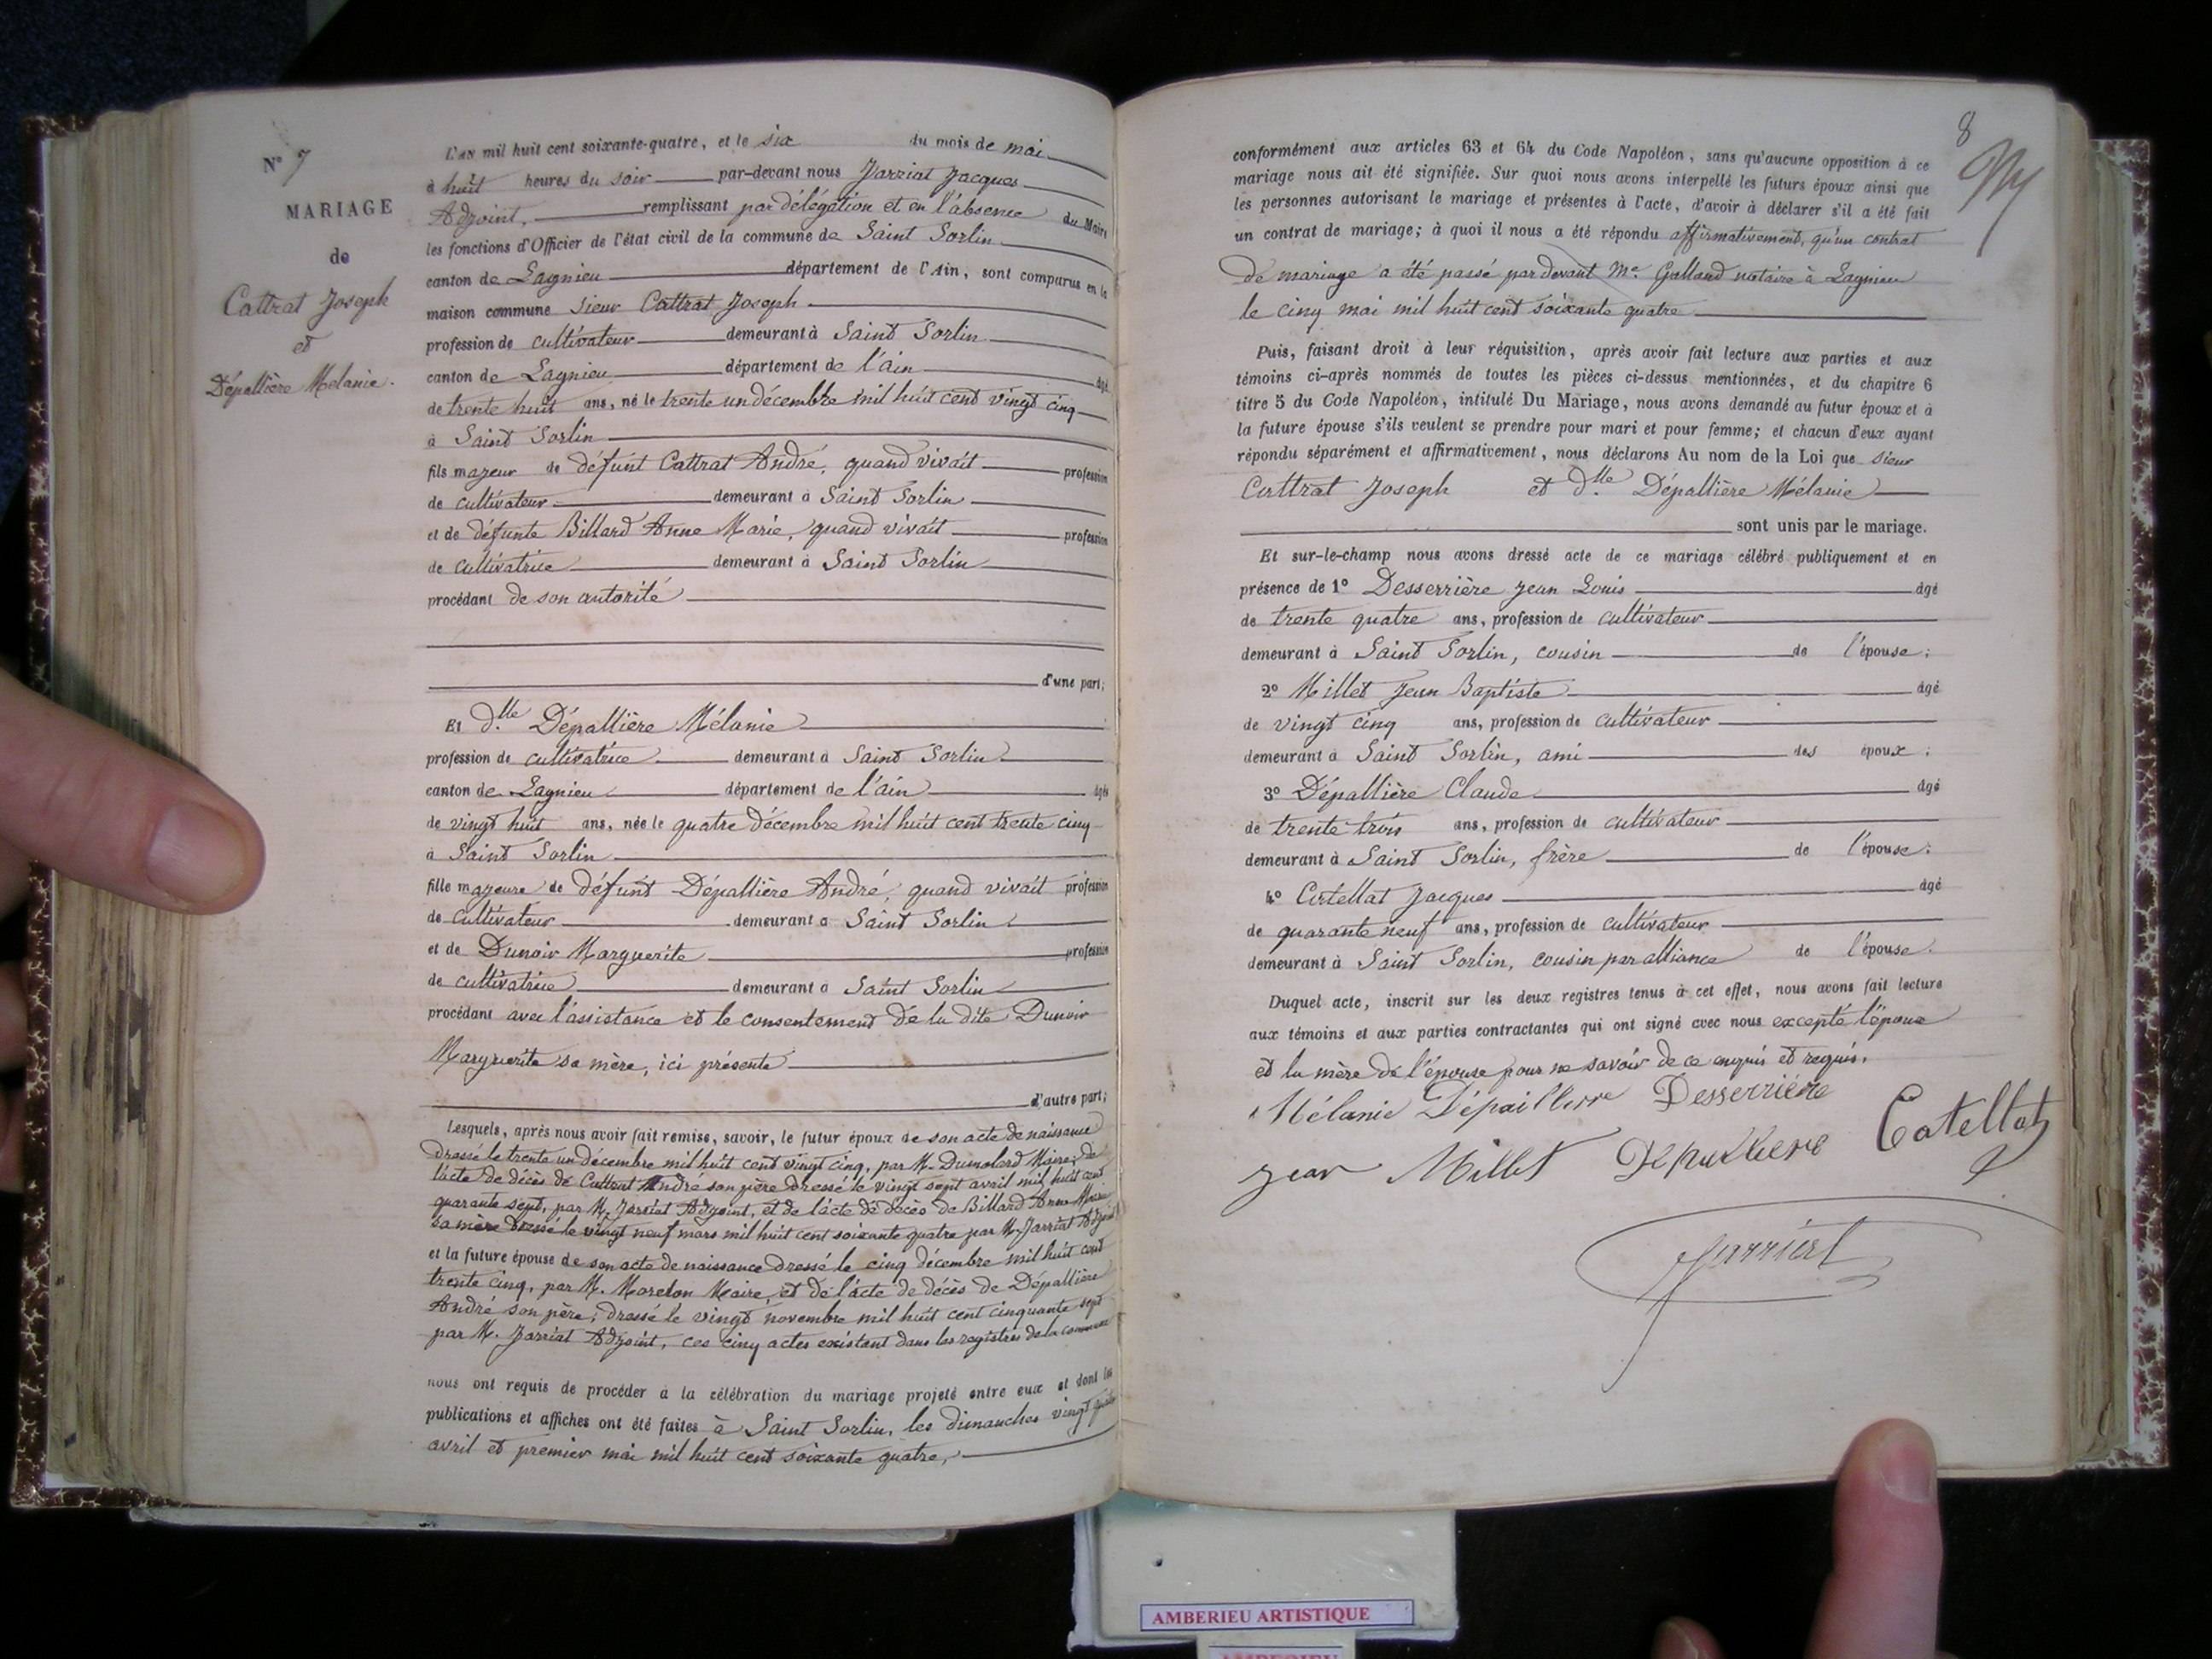 N° 7
MARIAGE
de
Cattrat Joseph
et
Dépallière Mélanie.
L'an mil huit cent soixante-quatre, et le six du mois de mai
à huit heures du soir par-devant nous Jarriat Jacques
Adjoint, remplissant par délégation et en l'absence du Maire
les fonctions d'Officier de l'état civil de la commune de Saint Sorlin
canton de Lagnieu département de l'Ain, sont comparus en la
maison commune sieur Cattrat Joseph
profession de cultivateur demeurant à Saint Sorlin
canton de Lagnieu département de l'ain âgé
de trente huit ans, né le trente un décembre mil huit cent vingt cinq
à Saint Sorlin
fils majeur de défunt Cattrat André, quand vivait profession
de cultivateur demeurant à Saint Sorlin
et de défunte Billard Anne Marie, quand vivait profession
de cultivatrice demeurant à Saint Sorlin
procédant de son autorité
d'une part;
Et dlle Dépallière Mélanie
profession de cultivatrice demeurant à Saint Sorlin
canton de Lagnieu département de l'ain âgée
de vingt huit ans, née le quatre décembre mil huit cent trente cinq
à Saint Sorlin
fille majeure de défunt Dépallière André, quand vivait profession
de cultivateur demeurant à Saint Sorlin
et de Dunoir Marguerite profession
de cultivatrice demeurant à Saint Sorlin
procédant avec l'assistance et le consentement de la dite Dunoir
Marguerite sa mère, ici présente
d'autre part;
Lesquels, après nous avoir fait remise, savoir, le futur époux de son acte de naissance
dressé le trente un décembre mil huit cent vingt cinq, par M. Dumolard Maire, de
l'acte de décès de Cattrat André son père dressé le vingt sept avril mil huit cent
quarante sept, par M. Jarriat Adjoint, et de l'acte de décès de Billard Anne Marie
sa mère dressé le vingt neuf mars mil huit cent soixante quatre par M. Jarriat Adjoint
et la future épouse de son acte de naissance dressé le cinq décembre mil huit cent
trente cinq, par M. Morelon Maire, et de l'acte de décès de Dépallière
André son père, dressé le vingt novembre mil huit cent cinquante sept
par M. Jarriat Adjoint, ces cinq actes existant dans les registres de la commune
nous ont requis de procéder à la célébration du mariage projeté entre eux et dont les
publications et affiches ont été faites à Saint Sorlin, les dimanches vingt quatre
avril et premier mai mil huit cent soixante quatre,
8
conformément aux articles 63 et 64 du Code Napoléon, sans qu'aucune opposition à ce
mariage nous ait été signifiée. Sur quoi nous avons interpellé les futurs époux ainsi que
les personnes autorisant le mariage et présentes à l'acte, d'avoir à déclarer s'il a été fait
un contrat de mariage; à quoi il nous a été répondu affirmativement, qu'un contrat
de mariage a été passé par devant Me Galland notaire à Lagnieu
le cinq mai mil huit cent soixante quatre
Puis, faisant droit à leur réquisition, après avoir fait lecture aux parties et aux
témoins ci-après nommés de toutes les pièces ci-dessus mentionnées, et du chapitre 6
titre 5 du Code Napoléon, intitulé Du Mariage, nous avons demandé au futur époux et à
la future épouse s'ils veulent se prendre pour mari et pour femme; et chacun d'eux ayant
répondu séparément et affirmativement, nous déclarons Au nom de la Loi que sieur
Cattrat Joseph et dlle Dépallière Mélanie
sont unis par le mariage.
Et sur-le-champ nous avons dressé acte de ce mariage célébré publiquement et en
présence de 1° Desserrière Jean Louis âgé
de trente quatre ans, profession de cultivateur
demeurant à Saint Sorlin, cousin de l'épouse;
2° Millet Jean Baptiste âgé
de vingt cinq ans, profession de cultivateur
demeurant à Saint Sorlin, ami des époux;
3° Dépallière Claude âgé
de trente trois ans, profession de cultivateur
demeurant à Saint Sorlin, frère de l'épouse;
4° Catellat Jacques âgé
de quarante neuf ans, profession de cultivateur
demeurant à Saint Sorlin, cousin par alliance de l'épouse.
Duquel acte, inscrit sur les deux registres tenus à cet effet, nous avons fait lecture
aux témoins et aux parties contractantes qui ont signé avec nous excepté l'époux
et la mère de l'épouse pour ne savoir de ce enquis et requis.
Mélanie Dépaillere Desserriere
Catellat
Jean Millet Depalliere
Jarriat
AMBERIEU ARTISTIQUE
AMBERIEU